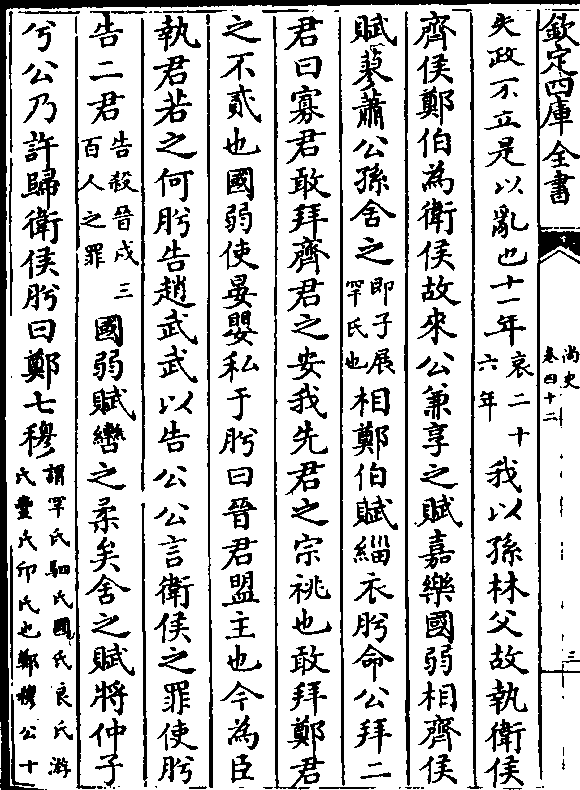 欽定四庫全書
尚史
卷四十二
三
失政不立是以亂也十一年哀二十六年我以孫林父故執衛侯
齊侯鄭伯為衛侯故來公兼享之賦嘉樂國弱相齊侯
賦蓼蕭公孫舍之即子展罕氏也相鄭伯賦緇衣肸命公拜二
君曰寡君敢拜齊君之安我先君之宗祧也敢拜鄭君
之不貳也國弱使晏嬰私于肸曰晉君盟主也今為臣
執君若之何肸告趙武武以告公公言衛侯之罪使肸
告二君告殺晉戍三百人之罪國弱賦轡之柔矣舍之賦將仲子
兮公乃許歸衛侯肸曰鄭七穆謂罕氏駟氏國氏良氏游氏豐氏印氏也鄭穆公十